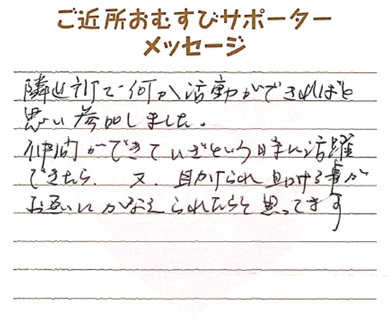 ご近所おむすびサポーター
メッセージ
隣近所で何か活動ができればと
思い参加しました。
仲間ができていざという時に活躍
できたら、又、助けられ助ける事が
お互いにかなえられたらと思ってます